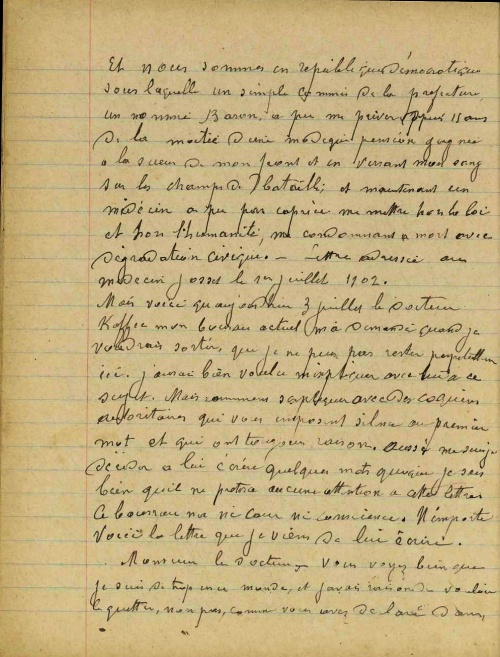 Et nous sommes en republique démocratique
sous laquelle un simple commis de la prefecture
un nommé Baron, a pu me priver depuis 15 ans
de la moitié d'une modeque pension gagnée
a la sueur de mon front et en versant mon sang
sur les champs de bataille; et maintenant un
médecin a pu par caprice me mettre hors la loi
et hors l'humanité, me condamnant a mort avec
dégradation civique. — Lettre adressée au
médecin Josset le 1er juillet 1902.
Mais voici qu'aujourdhui 3 juillet le docteur
Koffec mon bourreau actuel m'a demandé quand je
voudrais sortir, que je ne peux pas rester perpetuellement
ici. j'aurai bien voulu m'expliquer avec lui a ce
sujet. Mais comment s'expliquer avec des coquins
autoritaires qui vous imposent silence au premier
mot et qui ont toujours raison. aussi me suis je
décidé a lui écrire quelques mots quoique je sais
bien qu'il ne pretera aucune attention a cette lettre
Ce bourreau n'a ni cœur ni conscience. N'importe
Voici la lettre que je viens de lui écrire.
Monsieur le docteur, vous voyez bien que
je suis de trop en ce monde, et j'avais raison de vouloir
le quitter, non pas, comme vous avez declaré dans,